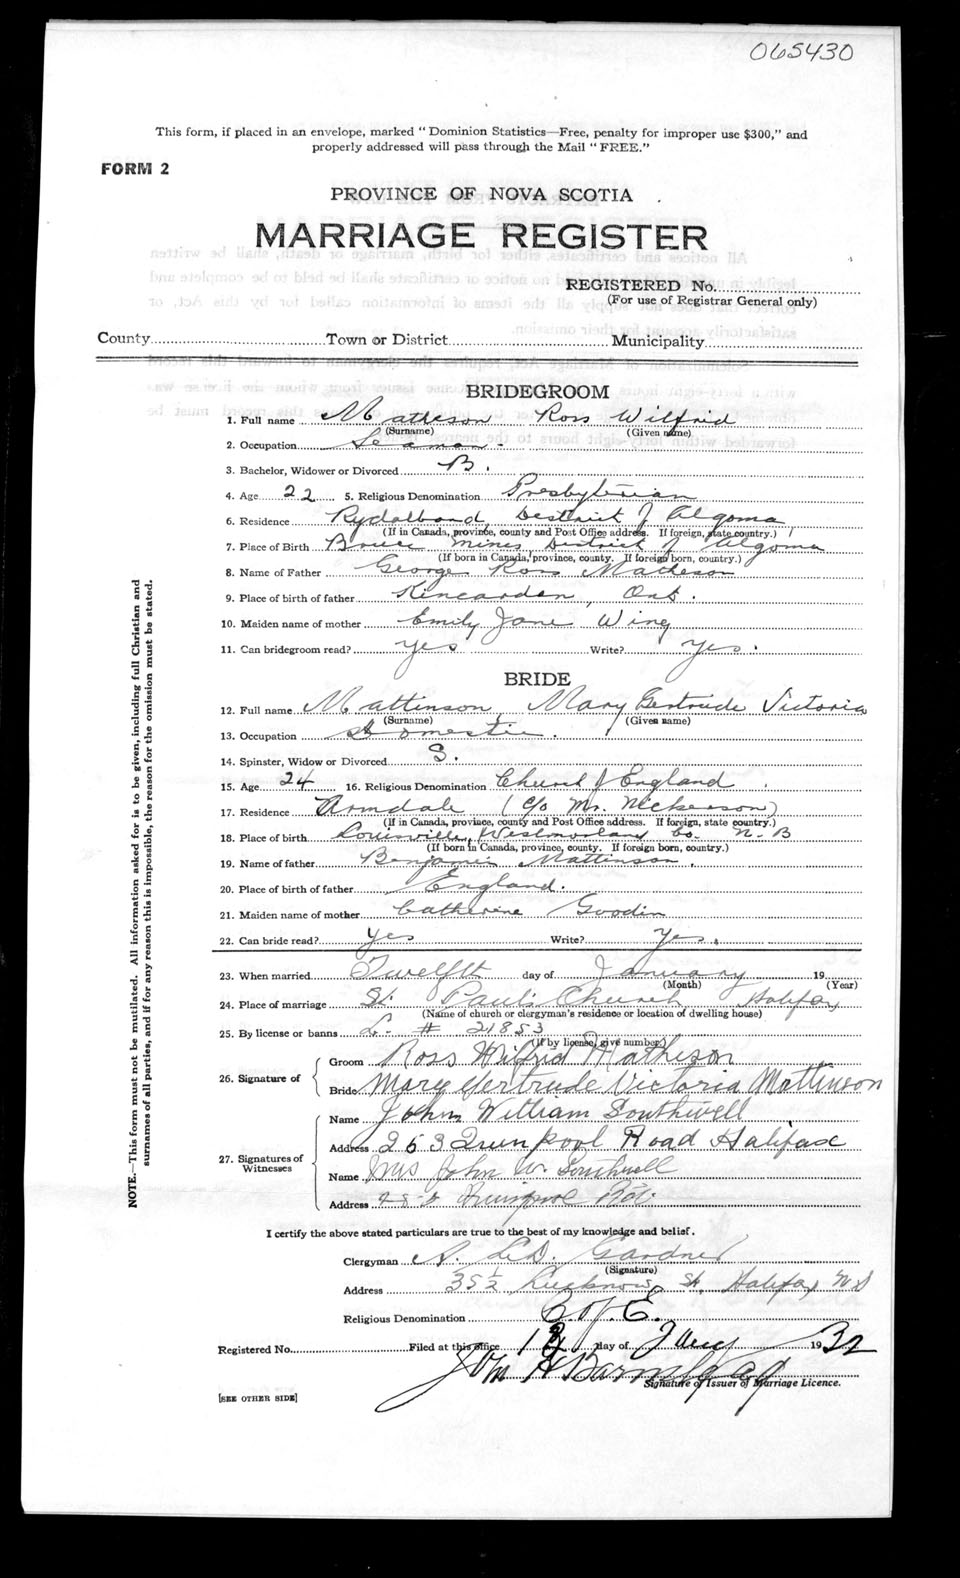 065430
This form, if placed in an envelope, marked " Dominion Statistics—Free, penalty for improper use $300," and
properly addressed will pass through the Mail " FREE."
FORM 2
PROVINCE OF NOVA SCOTIA
MARRIAGE REGISTER
REGISTERED No.
(For use of Registrar General only)
County Town or District Municipality
BRIDEGROOM
1. Full name Matheson Ross Wilfrid
(Surname) (Given name)
2. Occupation Seaman
3. Bachelor, Widower or Divorced B.
4. Age 22 5. Religious Denomination Presbyterian
6. Residence Rydalband District of Algoma
(If in Canada, province, county and Post Office address. If foreign, state country.)
7. Place of Birth Bruce Mines District of Algoma
(If born in Canada, province, county. If foreign born, country.)
8. Name of Father George Ross Matheson
9. Place of birth of father Kincarden, Ont.
10. Maiden name of mother Emily Jane Wing
11. Can bridegroom read? yes Write? yes.
BRIDE
12. Full name Mattinson, Mary Gertrude Victoria
(Surname) (Given name)
13. Occupation Domestic.
14. Spinster, Widow or Divorced S.
15. Age 24 16. Religious Denomination Church of England
17. Residence Armdale (c/o Mr. Nickerson)
(If in Canada, province, county and Post Office address. If foreign, state country.)
18. Place of birth Westmorland Co. N.B
(If born in Canada, province, county. If foreign born, country.)
19. Name of father Benjamin Mattinson.
20. Place of birth of father England.
21. Maiden name of mother Catherine Goodin
22. Can bride read? yes Write? yes.
23. When married Twelfth day of January 19
(Month) (Year)
24. Place of marriage St. Paul's Church Halifax
(Name of church or clergyman's residence or location of dwelling house)
25. By license or banns L- # 21853
(If by license, give number.)
26. Signature of
Groom Ross Wilfrid Matheson
Bride Mary Gertrude Victoria Mattinson
27. Signatures of Witnesses
Name John William Southwell
Address 253 Quinpool Road Halifax
Name Mrs John W. Southwell
Address Quinpool Rd.
I certify the above stated particulars are true to the best of my knowledge and belief.
Clergyman Gardner
(Signature)
Address 35½ Lucknow St. Halifax NS
Religious Denomination C of E.
Registered No. Filed at this office day of Jany 1932
John H Barnstead
Signature of Issuer of Marriage Licence.
[SEE OTHER SIDE]
NOTE.—This form must not be mutilated. All information asked for is to be given, including full Christian and
surnames of all parties, and if for any reason this is impossible, the reason for the omission must be stated.